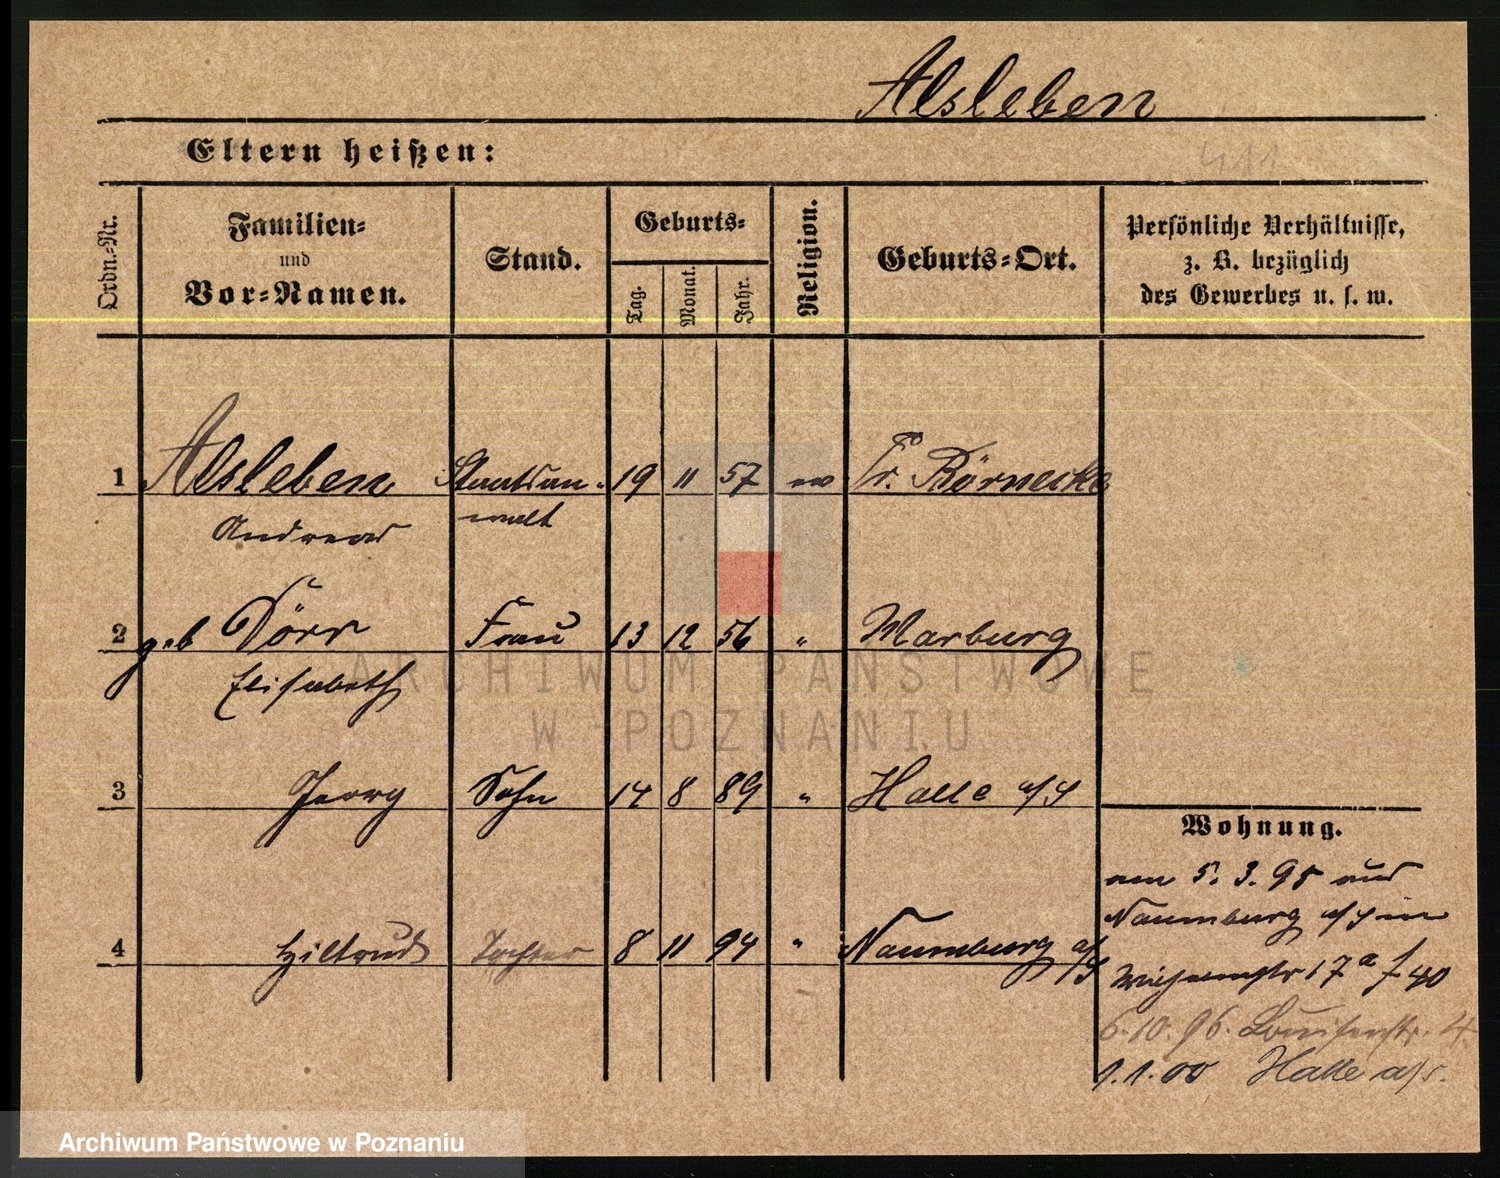 Alsleben
Eltern heißen:
411
Ordn.-Nr.
Familien-
und
Vor-Namen.
Stand.
Geburts-
Tag.
Monat.
Jahr.
Religion.
Geburts-Ort.
Persönliche Verhältnisse,
z. B. bezüglich
des Gewerbes u. s. w.
1 Alsleben Staatsan- 19 11 57 ev Gr. Börnecke
Andreas walt
2 geb Dörr Frau 13 12 56 " Marburg
Elisabeth
3 Georg Sohn 14 8 89 " Halle a/S
Wohnung.
am 5. 3. 95 aus
Naumburg a/S in
4 Hiltrud Tochter 8 11 94 " Naumburg a/S
17a f 40
6.10.96. Louisenstr. 4
1.1.00 Halle a/S.
ARCHIWUM PAŃSTWOWE
W POZNANIU
Archiwum Państwowe w Poznaniu